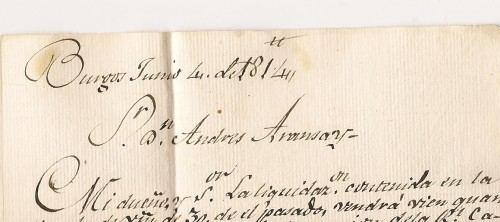 Burgos Junio 4. de 1814
Sr. Dn. Andres Aransay
Mi dueño, y Sor. La liquidaon. contenida en la
de 30. de el pasado, vendrá vien